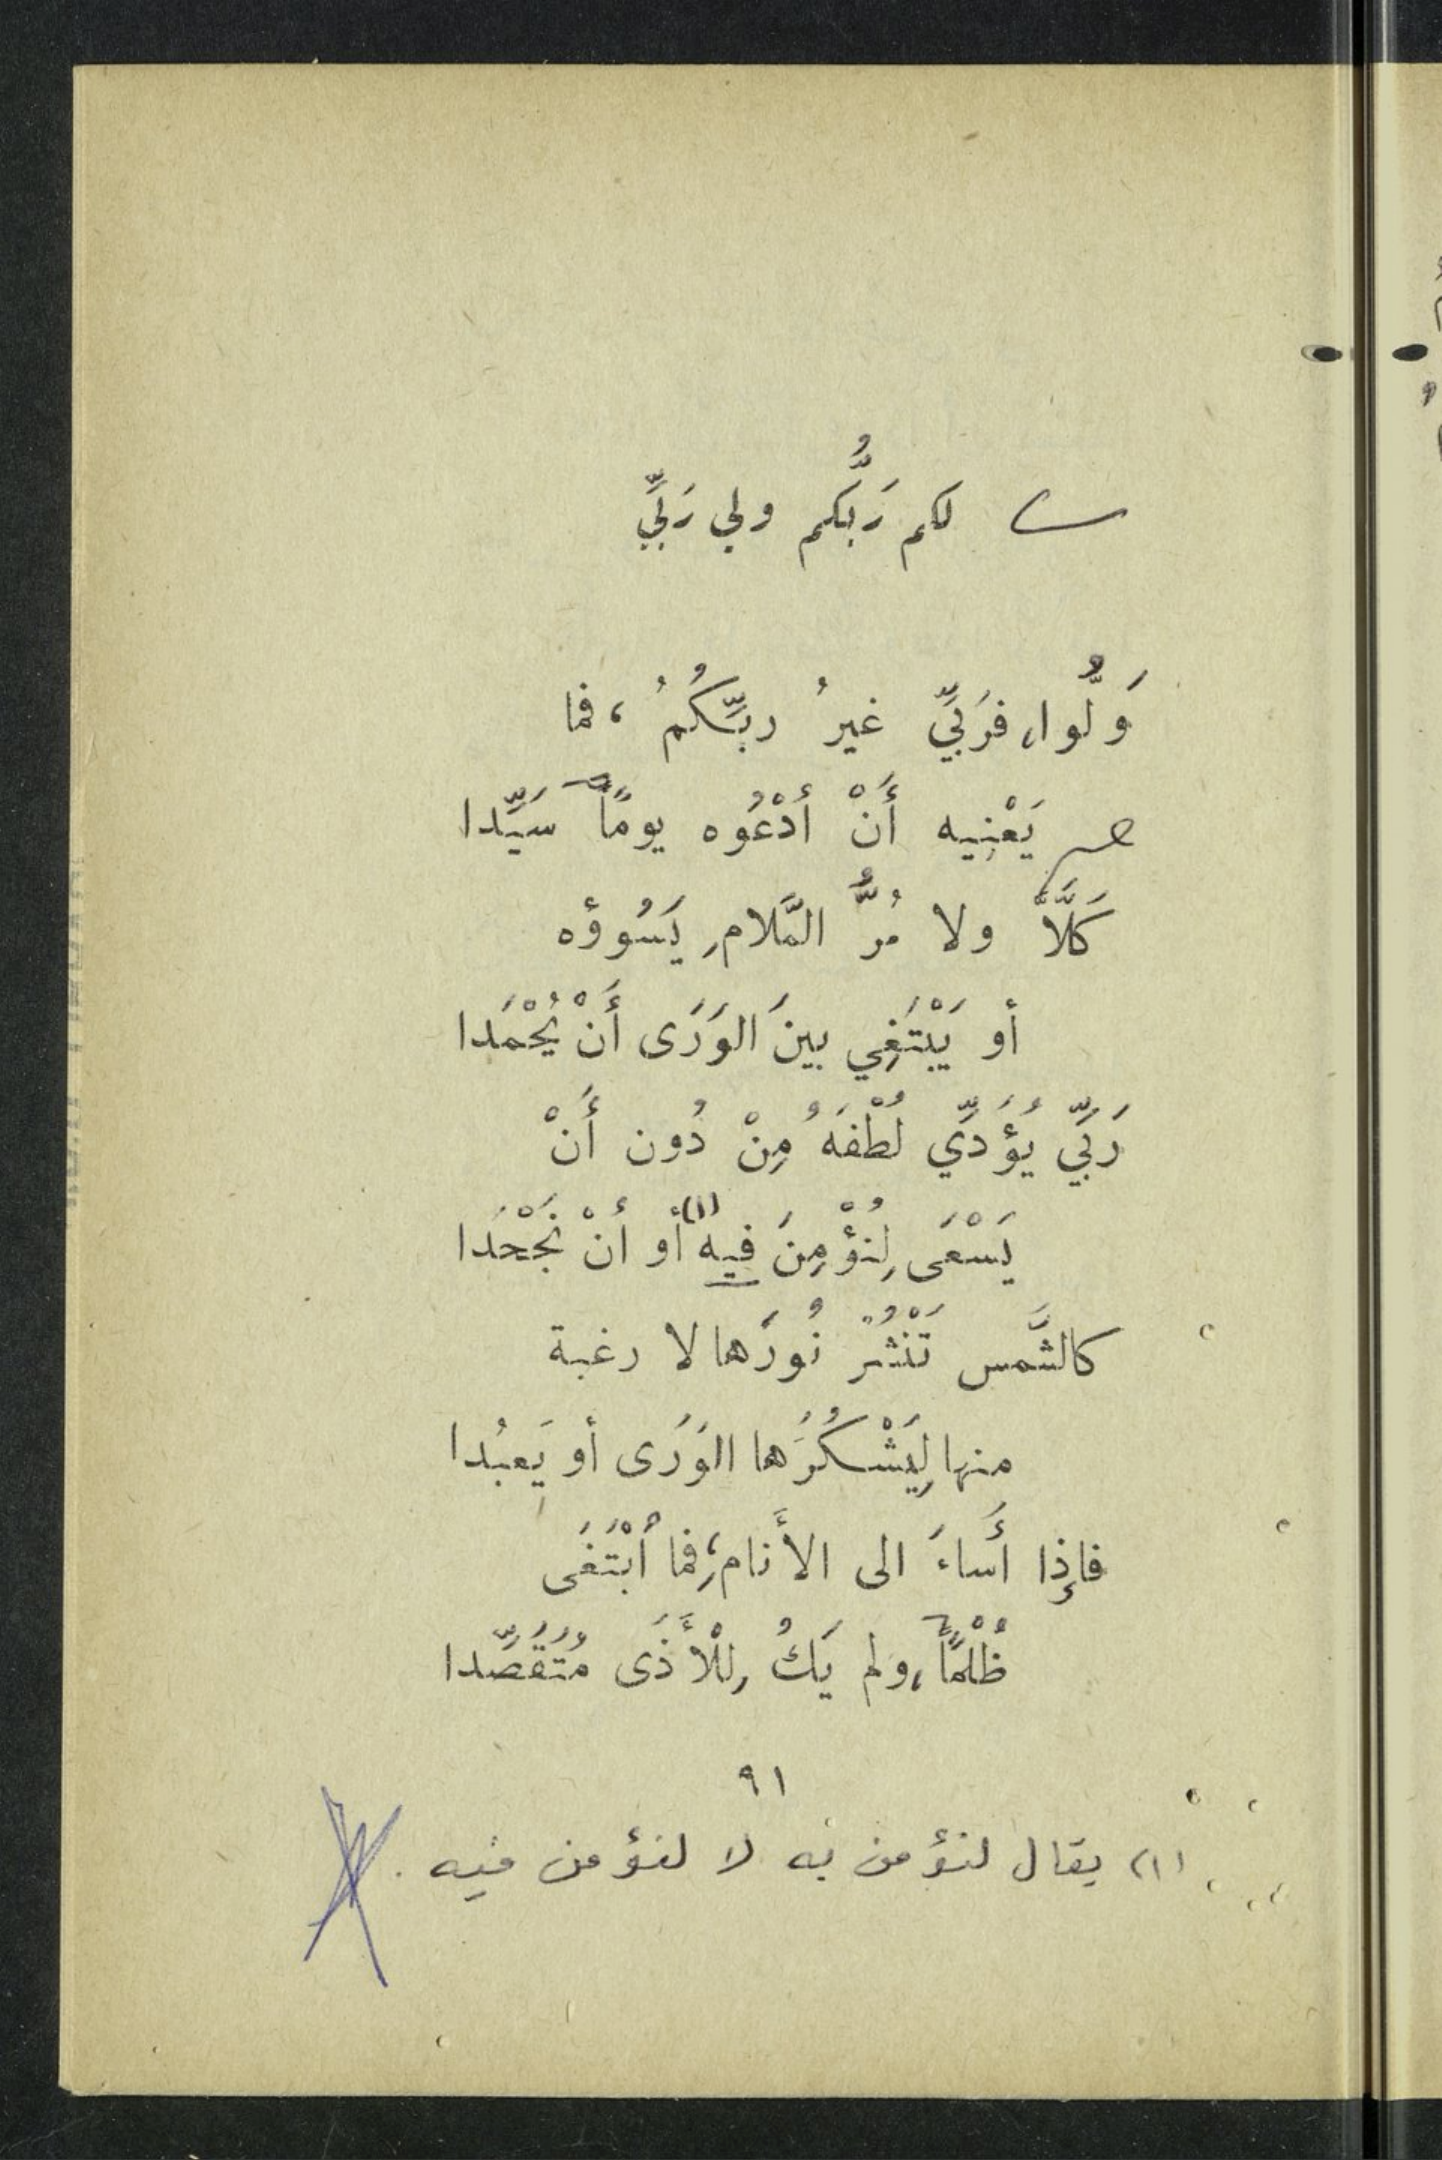 لكم رَبُّكم ولي رَبِّي
وَلُّوا، فرَبِّي غيرُ ربِّكُمُ، فما
يَعْنِيه أَنْ أدْعُوه يوماً سَيِّدا
كَلَّا ولا مُرُّ المَلامِ يَسُوؤه
أو يَبْتَغِي بينَ الوَرَى أَنْ يُحْمَدا
رَبِّي يُؤَدِّي لُطْفَهُ مِنْ دُون أَنْ
يَسْعَى لِنُؤْمِنَ فيه (١) أو أنْ نَجْحَدا
كالشَّمس تَنْثُرُ نُورَها لا رغبة
منها لِيَشْكُرَها الوَرَى أو يَعبُدا
فإِذا أَساءَ الى الأَنامِ، فما ابْتَغَى
ظُلْماً، ولم يَكُ لِلْأَذَى مُتَقَصِّدا
٩١
(١) يقال لنؤمن به لا لنؤمن فيه .